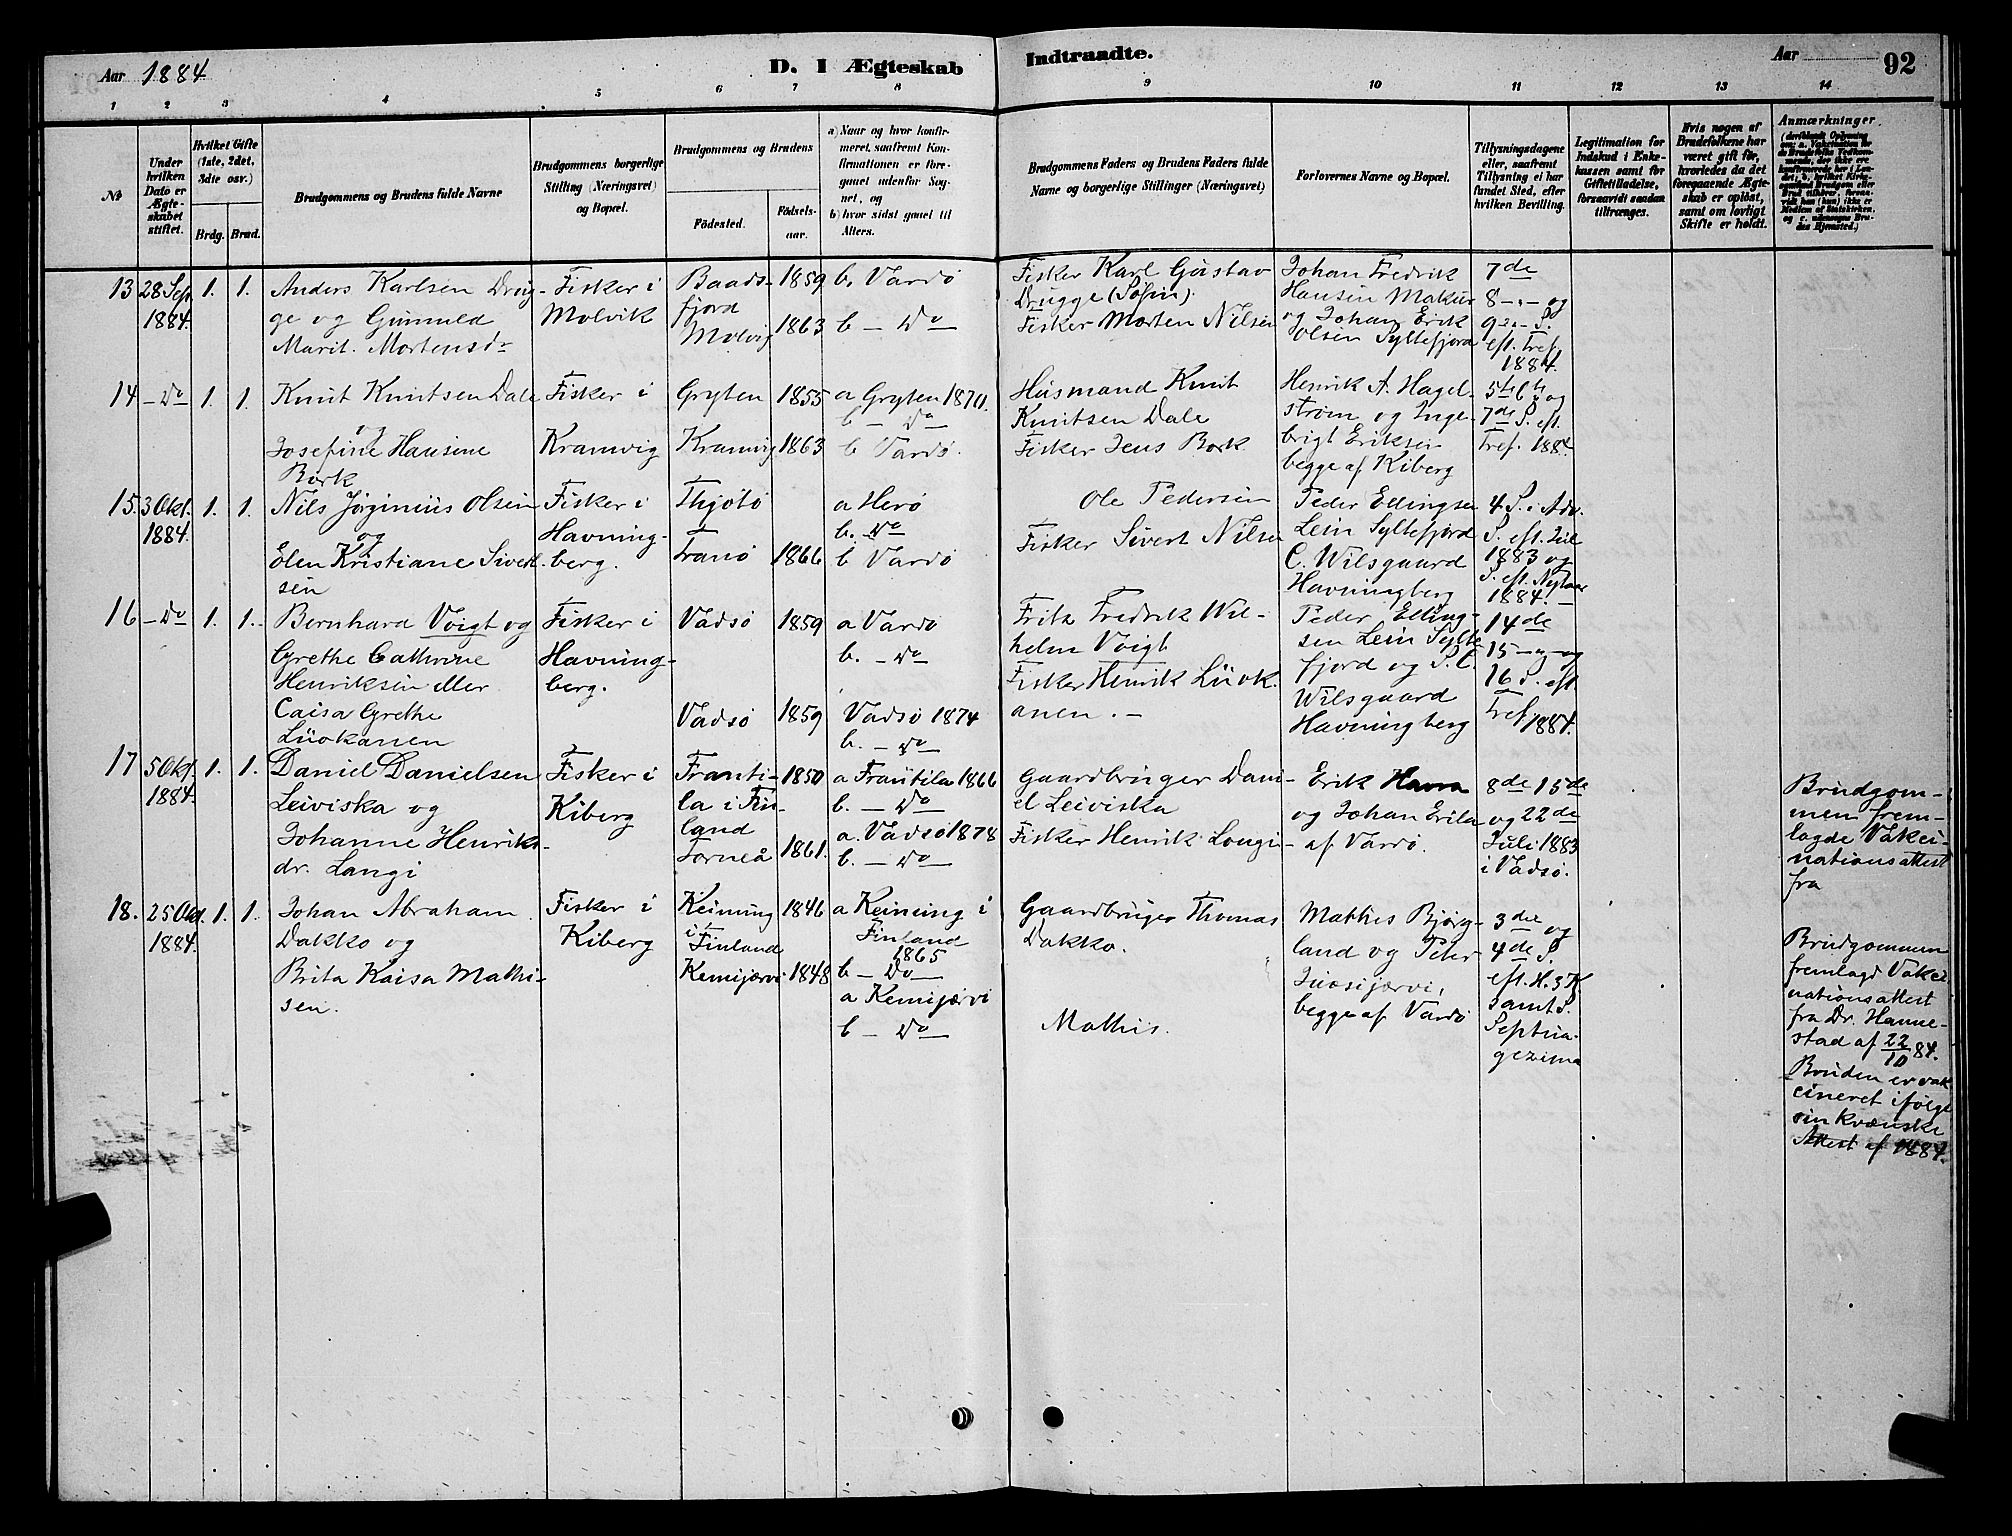 Aar 1884
D. I Ægteskab
Indtraadte.
Aar
92
1 2 3 4 5 6 7 8 9 10 11 12 13 14
No
Under
hvilken
Dato er
Ægte-
skabet
stiftet.
Hvilket Gifte
(1ste, 2det,
3die osv.)
Brdg. Brud.
Brudgommens og Brudens fulde Navne
Brudgommens borgerlige
Stilling (Næringsvei)
og Bopæl.
Brudgommens og Brudens
Födested.
Födsels-
aar.
a) Naar og hvor konfir-
meret, saafremt Kon-
firmationen er fore-
gaaet udenfor Sog-
net, og
b) hvor sidst gaaet til
Alters.
Brudgommens Faders og Brudens Faders fulde
Navne og borgerlige Stillinger (Næringsvei)
Forlovernes Navne og Bopæl.
Tillysningsdagene
eller, saafremt
Tillysning ei har
fundet Sted, efter
hvilken Bevilling.
Legitimation for
Indskud i Enke-
kassen samt for
Giftetilladelse,
forsaavidt saadan
tiltrænges.
Hvis nogen af
Brudefolkene har
været gift før,
hvorledes da det
foregaaende Ægte-
skab er oplöst,
samt om lovligt
Skifte er holdt.
Anmærkninger
13
28 Sep.
1884.
1. 1.
Anders Karlsen Drug-
ge og Gunnild
Marit. Mortensdr
Fisker i
Molvik
Baads-
fjord
Molvig
1859
1863
b. Vardö
b – Do
Fisker Karl Gustav
Drugge (Söfin).
Fisker Morten Nilsen
Johan Fredrik
Hansen Makur
og Johan Erik
Olsen Syltefjord
7de
8 –„– og
9 –„– S.
eft. Tref.
1884.
14
– Do
1. 1.
Knut Knutsen Dale
og
Josefine Hansine
Bork
Fisker i
Kramvig
Gryten
Kramvig
1855
1863
a Gryten 1870.
b – Do
b Vardö.
Husmand Knut
Knutsen Dale
Fisker Jens Bork
Henrik A. Hagel-
ström og Inge-
brigt Eriksen
begge af Kiberg
5te 6te og
7de S. eft.
Tref. 1884
15.
3 Okt.
1884.
1. 1.
Nils Jörginius Olsen
og
Elen Kristiane Sivert-
sen
Fisker i
Havning-
berg.
Thjötö
Tranö
1866
a Herö
b. Do
b Vardö
Ole Pedersen
Fisker Sivert Nilsen
Peder Edingsen
Lein Syltefjord
C. Wilsgaard
Havningberg
4 S. i Adv.
S. eft. Jul
1883 og
S. eft. Nytaar
1884. –
16
– Do
1. 1.
Bernhard Voigt og
Grethe Cathrine
Henriksen eller
Caisa Grethe
Luokanen
Fisker i
Havning-
berg.
Vadsö
Vadsö
1859
1859
a Vardö
b. – Do
Vadsö 1874
b. – Do
Fritz Fredrik Wil-
helm Voigt
Fisker Henrik Luok-
anen. –
Peder Elling-
sen Lein Sylte
fjord og P. C.
Wilsgaard
Havningberg
14de
15 –„– og
16 S. eft
Tref 1884.
17
5 Okt.
1884.
1. 1.
Daniel Danielsen
Leiviska og
Johanne Henriks-
dr. Langi
Fisker i
Kiberg
Franti-
la i Fin-
land
Torneå
1850
1861.
a Frantila 1866
b. – Do
a. Vadsö 1878
b. – Do
Gaardbruger Dani-
el Leiviska
Fisker Henrik Longi-
Erik Havra
og Johan Erila
af Vardö.
8de 15de
og 22de
Juli 1883
i Vadsö.
Brudgom-
men frem-
lagde Vakci-
nationsattest
fra
18.
25 Okt.
1884.
1. 1.
Johan Abraham
Dakko og
Brita Kaisa Mathi-
sen.
Fisker i
Kiberg
Keining
i Finland
Kemijærvi
1846
1848
a Keining i
Finland
1865
b – Do
a Kemijærvi
b – Do
Gaardbruger Thomas
Dakko.
Mathis.
Mathis Bjørg-
land og Peter
Juosijærvi,
begge af Vardö
3die og
4de S.
eft. H. 3 K
samt S.
Septua-
gezima
Brudgommen
fremlagd Vakci
nationsattest
fra Dr. Hanne-
stad af 22/10 84.
Bruden er vak
cineret ifølge
sin kvænske
Attest af 1884.